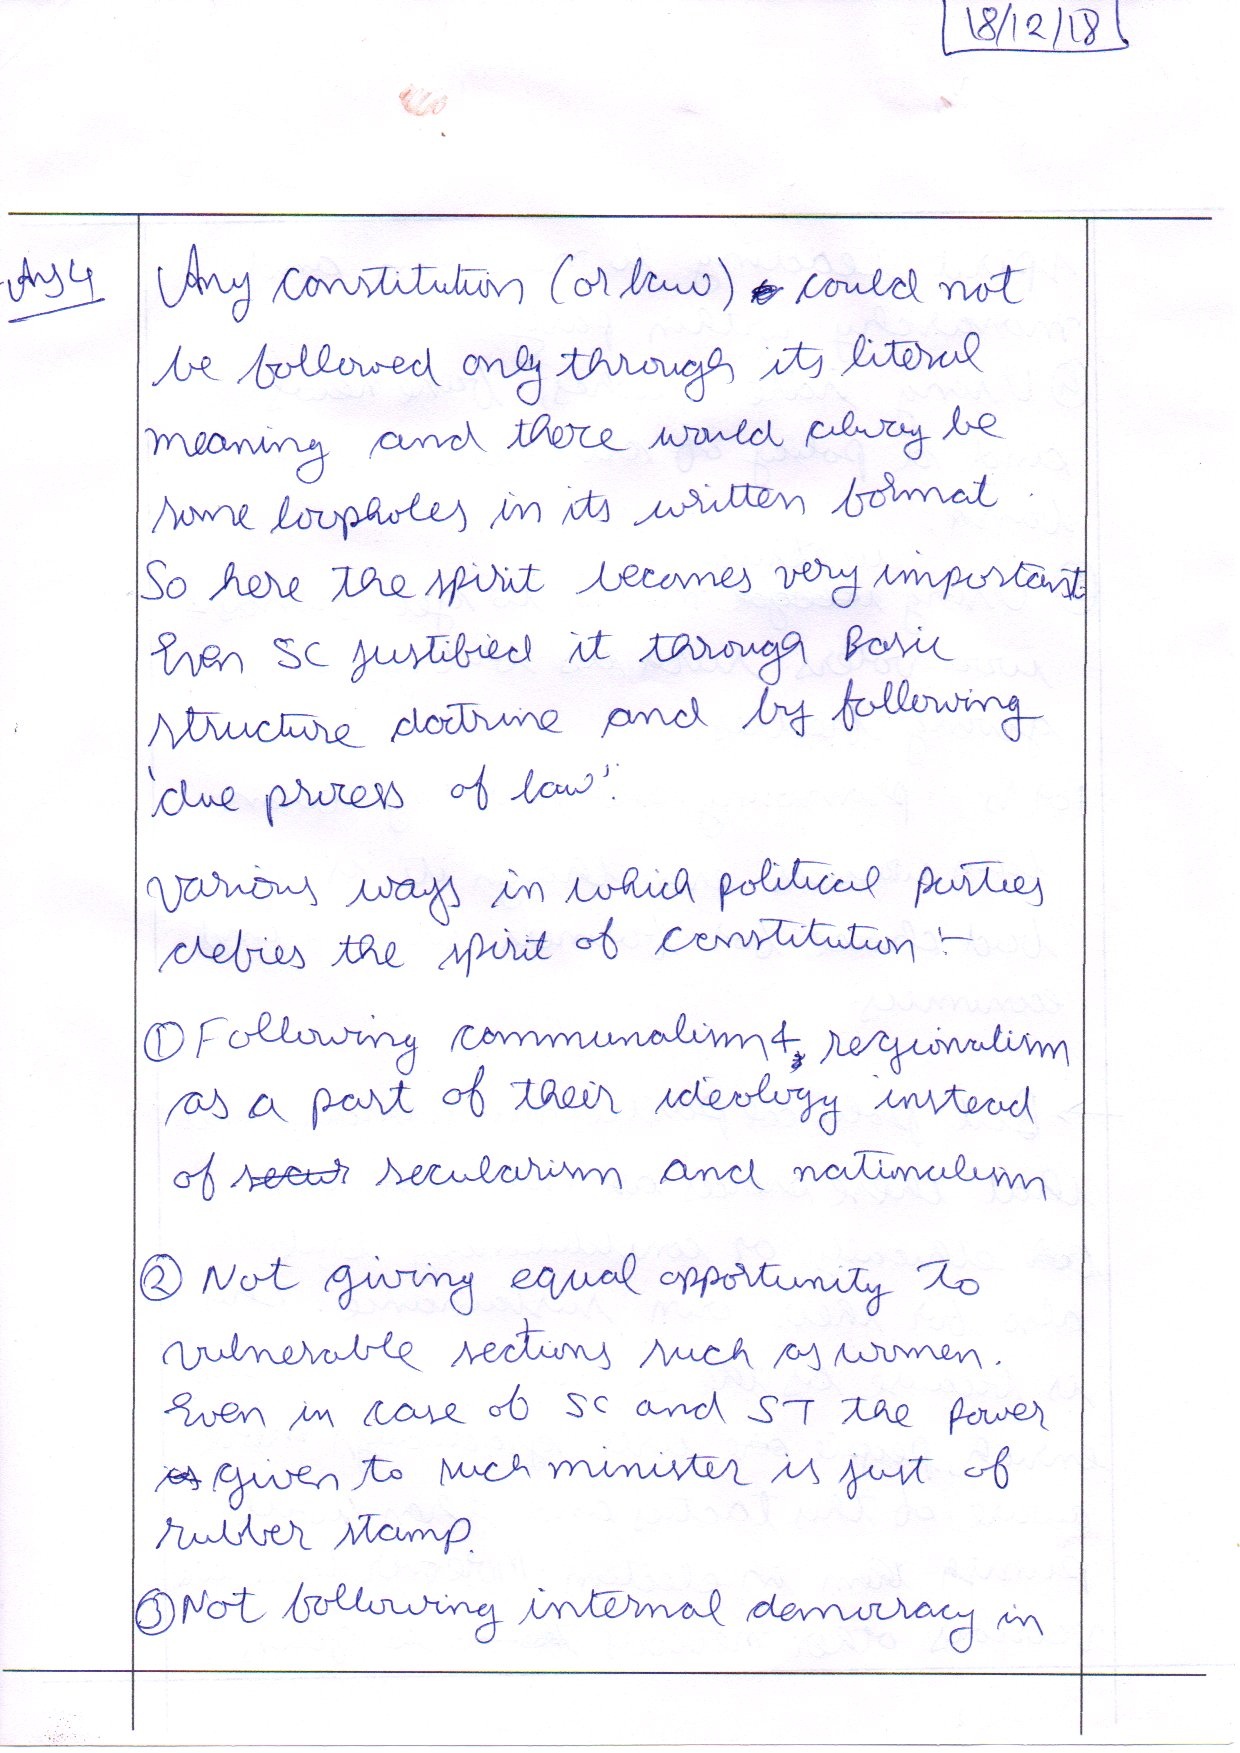 18/12/18
Ans 4
Any constitution (or law) could not
be followed only through its literal
meaning and there would alway be
some loopholes in its written format.
So here the spirit becomes very important.
Even SC justified it through Basic
structure doctrine and by following
'due process of law'.
Various ways in which political parties
defies the spirit of constitution :-
① Following communalism & regionalism
as a part of their ideology instead
of secularism and nationalism
② Not giving equal opportunity to
vulnerable sections such as women.
Even in case of SC and ST the power
given to such minister is just of
rubber stamp.
③ Not following internal democracy in